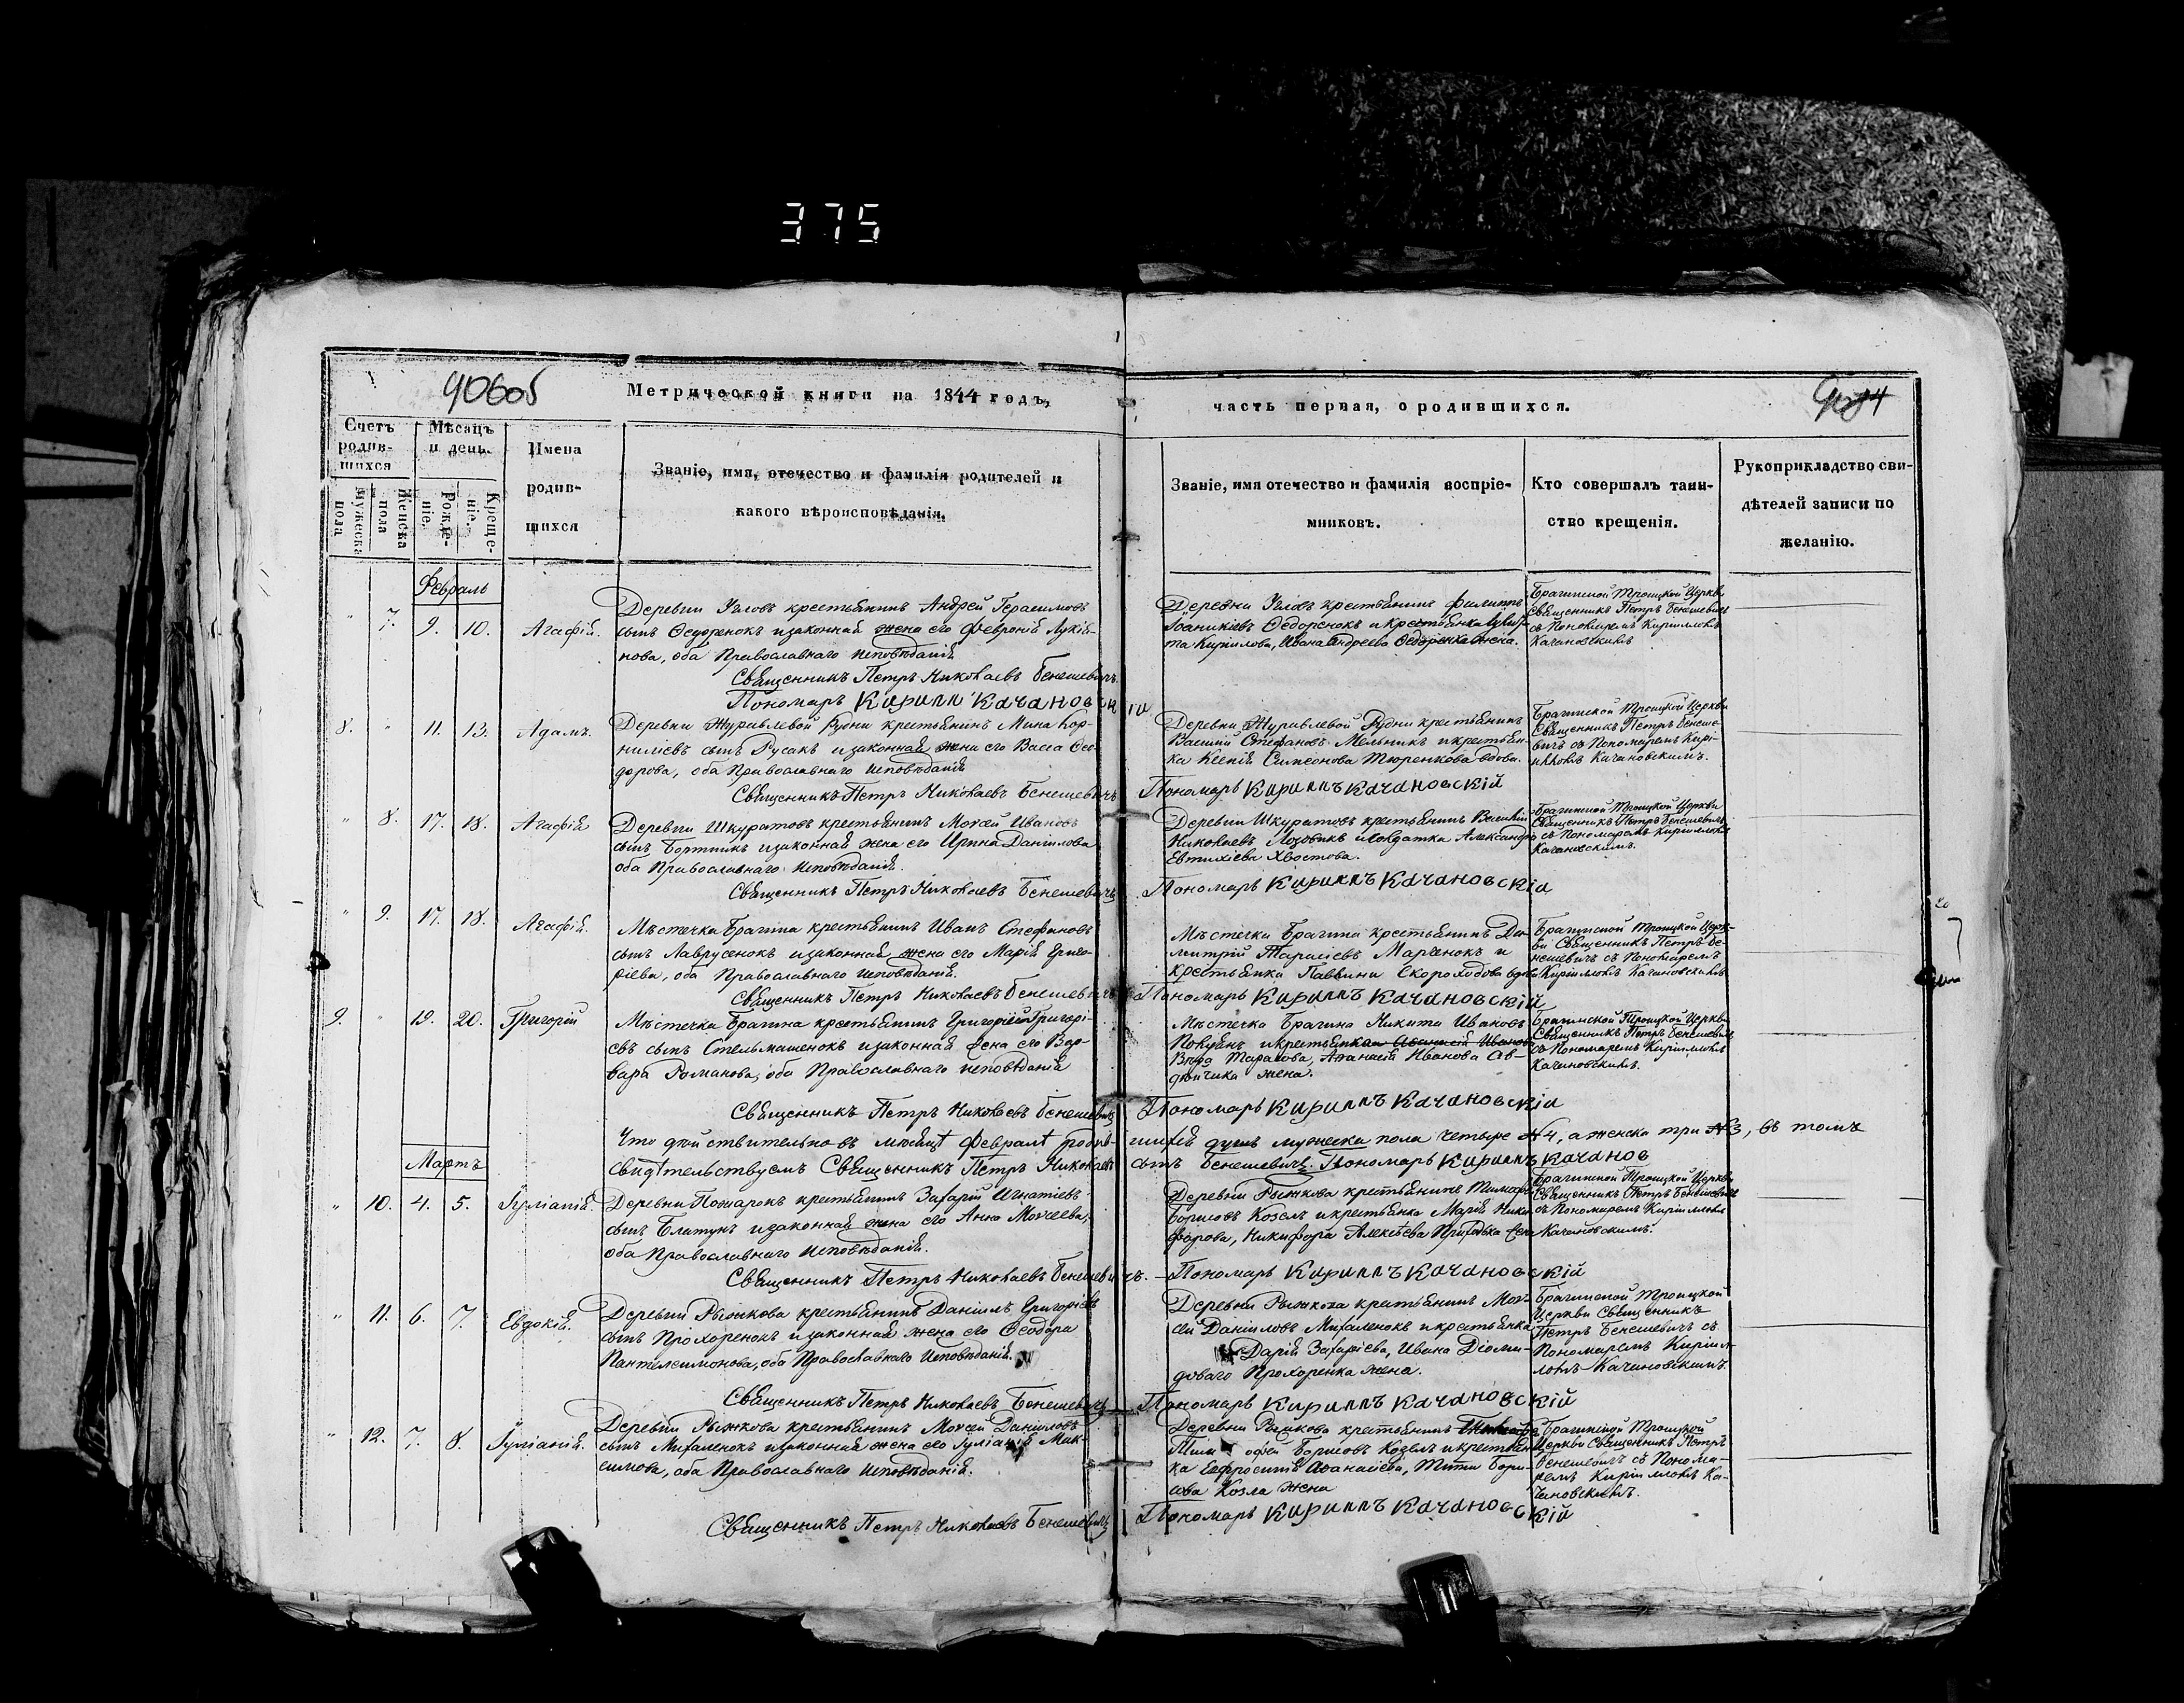 375
406об
Метрической книги на 1844 годъ,
часть первая, о родившихся.
Счетъ родив-шихся
Мѣсяцъ и день.
Имена родив-шихся
Званіе, имя, отечество и фамилія родителей и
какого вѣроисповѣданія.
Мужеска пола
Женска пола
Рожде-ніе.
Креще-ніе.
Званіе, имя отечество и фамилія воспріе-
мниковъ.
Кто совершалъ таин-
ство крещенія.
Рукоприкладство сви-
дѣтелей записи по
желанію.
Февраль
" 7. 9. 10. Агафія.
Деревни Угловъ крестьянинъ Андрей Герасимовъ
сынъ Ѳедоренокъ и законная жена его Февронія Лукія-
нова, оба Православнаго исповѣданія
Священникъ Петръ Николаевъ Бенешевичъ.
Пономарь Кириллъ Качановскій
Деревни Угловъ крестьянинъ Филиппъ
Іоаникіевъ Ѳедоренокъ и крестьянка
та Кирилова, Ивана Андреева Ѳедоренка жена.
Брагинской Троицкой Церкви
Священникъ Петръ Бенешевичъ
съ Пономаремъ Кирилломъ
Качановскимъ
8. " 11. 13. Адамъ.
Деревни Журавлевой Рудни крестьянинъ Мина Кор-
ниліевъ сынъ Русакъ и законная жена его Васса Ѳео-
дорова, оба Православнаго исповѣданія
Священникъ Петръ Николаевъ Бенешевичъ
Деревни Журавлевой Рудни крестьянинъ
Василій Стефановъ Мельникъ и крестьян-
ка Ксенія Симеонова Тюренкова вдова.
Пономарь Кириллъ Качановскій
Брагинской Троицкой Церкви
Священникъ Петръ Бенеше-
вичъ съ Пономаремъ Кири-
лломъ Качановскимъ.
" 8. 17. 18. Агафія
Деревни Шкуратовъ крестьянинъ Моѵсей Ивановъ
сынъ Бортникъ и законная жена его Ирина Данилова
оба Православнаго исповѣданія.
Священникъ Петръ Николаевъ Бенешевичъ
Деревни Шкуратовъ крестьянинъ Василій
Николаевъ Лозовикъ и солдатка Александра
Евтихіева Хвостова.
Пономарь Кириллъ Качановскій
Брагинской Троицкой Церкви
Священникъ Петръ Бенешевичъ
съ Пономаремъ Кирилломъ
Качановскимъ.
" 9. 17. 18. Агафія.
Мѣстечка Брагина крестьянинъ Иванъ Стефановъ
сынъ Лаврусенокъ и законная жена его Марія Григо-
ріева, оба Православнаго исповѣданія.
Священникъ Петръ Николаевъ Бенешевичъ
Мѣстечка Брагина крестьянинъ Ди-
митрій Тарасіевъ Марченокъ и
крестьянка Скороходова вдова
Пономарь Кириллъ Качановскій
Брагинской Троицкой Церк-
ви Священникъ Петръ Бе-
нешевичъ съ Пономаремъ
Кирилломъ Качановскимъ
9. " 19. 20. Григорій
Мѣстечка Брагина крестьянинъ Григорій Григорі-
евъ сынъ Стельмашенокъ и законная жена его Вар-
вара Романова, оба Православнаго исповѣданія
Священникъ Петръ Николаевъ Бенешевичъ
Мѣстечка Брагина Никита Ивановъ
и крестьянка Аѳанасія Иванова
Тарасова, Аѳанасія Иванова Ов-
дюйчика жена.
Пономарь Кириллъ Качановскій
Брагинской Троицкой Церкви
Священникъ Петръ Бенешевичъ
съ Пономаремъ Кирилломъ
Качановскимъ.
Что дѣйствительно въ мѣсяцѣ Февралѣ родив-шихся душъ мужеска пола четыре №4, а женска три №3, въ томъ
свидѣтельствуемъ Священникъ Петръ Николаевъ сынъ Бенешевичъ. Пономарь Кириллъ Качанов
Мартъ
" 10. 4. 5. Іуліанія.
Деревни Пожарокъ крестьянинъ Захарій Игнатіевъ
сынъ Блитунъ и законная жена его Анна Моѵсеева,
оба Православнаго исповѣданія.
Священникъ Петръ Николаевъ Бенешевичъ.
Деревни Рыжкова крестьянинъ Тимофей
Борисовъ Козелъ и крестьянка Марія Ники-
форова, Никифора Алексѣева жена
Пономарь Кириллъ Качановскій
Брагинской Троицкой Церкви
Священникъ Петръ Бенешевичъ
съ Пономаремъ Кирилломъ
Качановскимъ.
" 11. 6. 7. Евдокія.
Деревни Рыжкова крестьянинъ Даніилъ Григоріевъ
сынъ Прохоренокъ и законная жена его Ѳеодора
Пантелеимонова, оба Православнаго исповѣданія.
Священникъ Петръ Николаевъ Бенешевичъ
Деревни Рыжкова крестьянинъ Моѵ-
сей Даніиловъ Михаленокъ и крестьянка
Дарія Захаріева, Ивана Діоми-
доваго Прохоренка жена.
Пономарь Кириллъ Качановскій
Брагинской Троицкой
Церкви Священникъ
Петръ Бенешевичъ съ
Пономаремъ Кирил-
ломъ Качановскимъ.
" 12. 7. 8. Іуліанія.
Деревни Рыжкова крестьянинъ Моѵсей Даніиловъ
сынъ Михаленокъ и законная жена его Іуліанія Мак-
симова, оба Православнаго исповѣданія.
Священникъ Петръ Николаевъ Бенешевичъ
Деревни Рыжкова крестьянинъ
Тимофей Борисовъ Козелъ и крестьян-
ка Евфросинія Аѳанасіева, Тита Бори-
сова Козла жена
Пономарь Кириллъ Качановскій
Брагинской Троицкой
Церкви Священникъ Петръ
Бенешевичъ съ Понома-
ремъ Кирилломъ Ка-
чановскимъ.